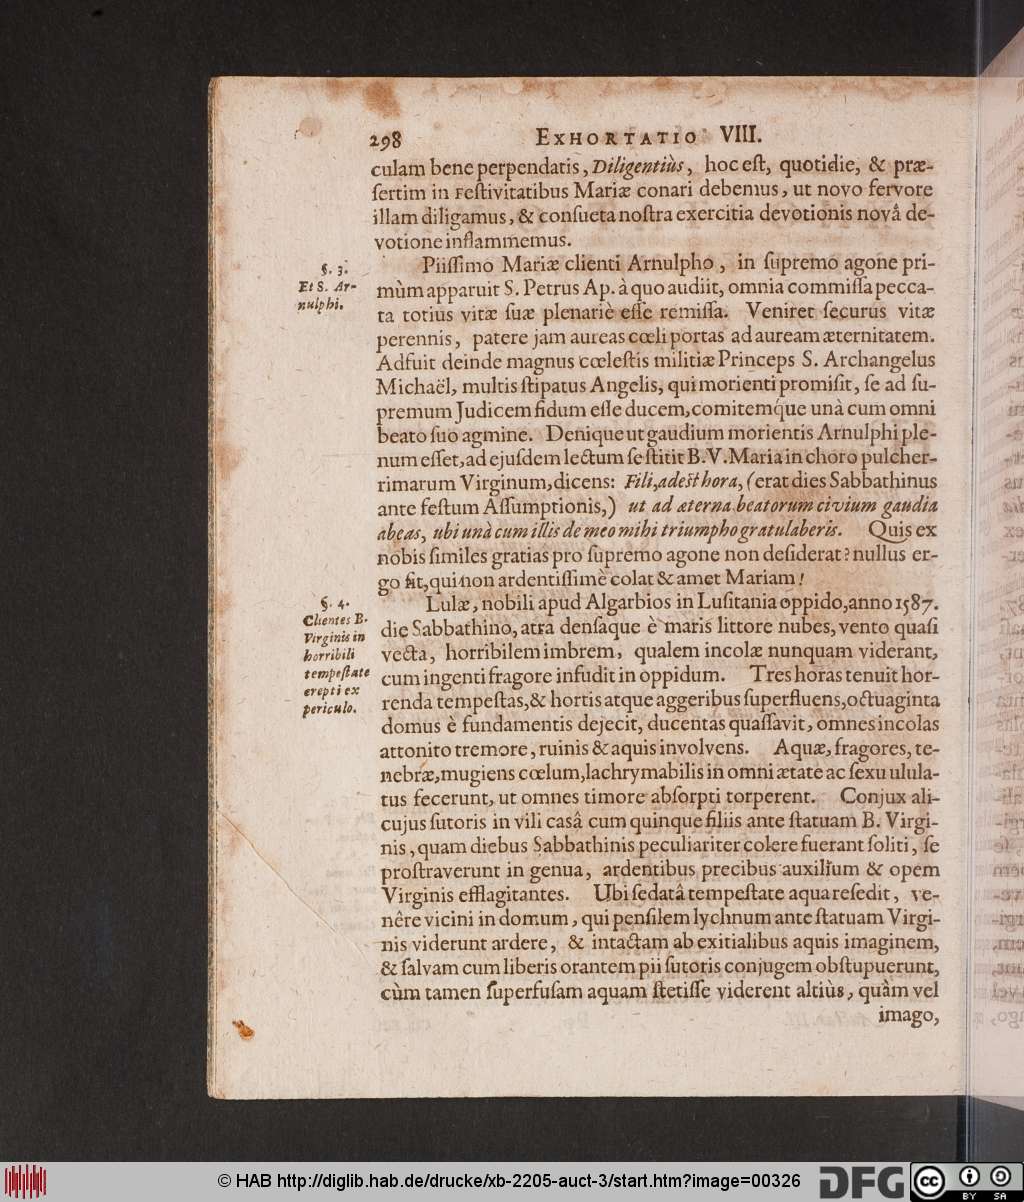 298 EXHORTATIO VIII.
culam bene perpendatis, Diligentiùs, hoc eſt, quotidie, & præ-
ſertim in Feſtivitatibus Mariæ conari debemus, ut novo fervore
illam diligamus, & conſueta noſtra exercitia devotionis novâ de-
votione inflammemus.
§. 3.
Et S. Ar-
nulphi.
Piiſſimo Mariæ clienti Arnulpho, in ſupremo agone pri-
mùm apparuit S. Petrus Ap. à quo audiit, omnia commiſſa pecca-
ta totius vitæ ſuæ plenariè eſſe remiſſa. Veniret ſecurus vitæ
perennis, patere jam aureas cœli portas ad auream æternitatem.
Adfuit deinde magnus cœleſtis militiæ Princeps S. Archangelus
Michaël, multis ſtipatus Angelis, qui morienti promiſit, ſe ad ſu-
premum Judicem fidum eſſe ducem, comitemq́ue unà cum omni
beato ſuo agmine. Denique ut gaudium morientis Arnulphi ple-
num eſſet, ad ejuſdem lectum ſe ſtitit B. V. Maria in choro pulcher-
rimarum Virginum, dicens: Fili, adest hora, (erat dies Sabbathinus
ante feſtum Aſſumptionis,) ut ad æterna beatorum civium gaudia
abeas, ubi unà cum illis de meo mihi triumpho gratulaberis. Quis ex
nobis ſimiles gratias pro ſupremo agone non deſiderat? nullus er-
go ſit, qui non ardentiſſimè colat & amet Mariam!
§. 4.
Clientes B.
Virginis in
horribili
tempeſtate
erepti ex
periculo.
Lulæ, nobili apud Algarbios in Luſitania oppido, anno 1587.
die Sabbathino, atra denſaque è maris littore nubes, vento quaſi
vecta, horribilem imbrem, qualem incolæ nunquam viderant,
cum ingenti fragore infudit in oppidum. Tres horas tenuit hor-
renda tempeſtas, & hortis atque aggeribus ſuperfluens, octuaginta
domus è fundamentis dejecit, ducentas quaſſavit, omnes incolas
attonito tremore, ruinis & aquis involvens. Aquæ, fragores, te-
nebræ, mugiens cœlum, lachrymabilis in omni ætate ac ſexu ulula-
tus fecerunt, ut omnes timore abſorpti torperent. Conjux ali-
cujus ſutoris in vili casâ cum quinque filiis ante ſtatuam B. Virgi-
nis, quam diebus Sabbathinis peculiariter colere fuerant ſoliti, ſe
proſtraverunt in genua, ardentibus precibus auxilium & opem
Virginis efflagitantes. Ubi ſedatâ tempeſtate aqua reſedit, ve-
nêre vicini in domum, qui penſilem lychnum ante ſtatuam Virgi-
nis viderunt ardere, & intactam ab exitialibus aquis imaginem,
& ſalvam cum liberis orantem pii ſutoris conjugem obſtupuerunt,
cùm tamen ſuperfuſam aquam ſtetiſſe viderent altiùs, quàm vel
imago,
© HAB http://diglib.hab.de/drucke/xb-2205-auct-3/start.htm?image=00326
DFG
cc
BY SA